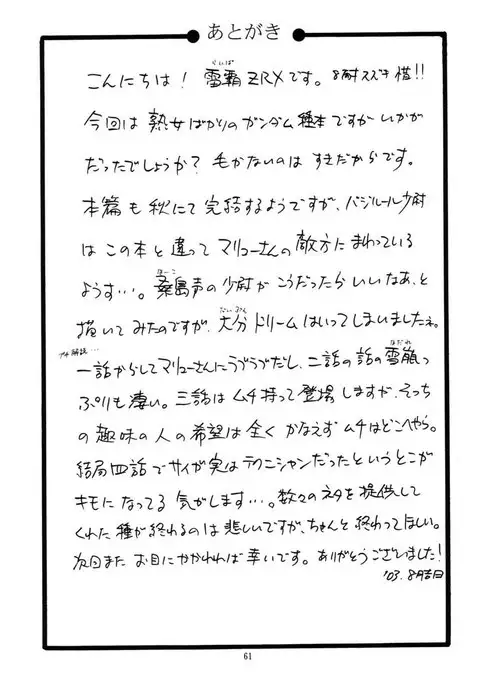 あとがき
こんにちは！雷覇ZRXです。8耐スズキ惜!!
らいば
今回は熟女ばかりのガンダム種本ですがいかが
だったでしょうか？毛がないのはすきだからです。
本篇も秋にて完結するようですが、バジルール少尉
はこの本と違ってマリューさんの敵方にまわっている
ようす…。桑島声の少尉がこうだったらいいなあ、と
ほーこ
描いてみたのですが、大分ドリームはいってしまいましたね。
だいぶん
プチ解説…
一話からしてマリューさんにラブラブだし、二話の話の雪崩っ
なだれ
ぷりも凄い。三話はムチ持って登場しますが、そっち
の趣味の人の希望は全くかなえずムチはどこへやら。
結局四話でサイが実はテクニシャンだったというとこが
キモになってる気がします…。数々のネタを提供して
くれた種が終わるのは悲しいですが、ちゃんと終わってほしい。
次回またお目にかかわれれば幸いです。ありがとうございました！
'03.8月吉日
61